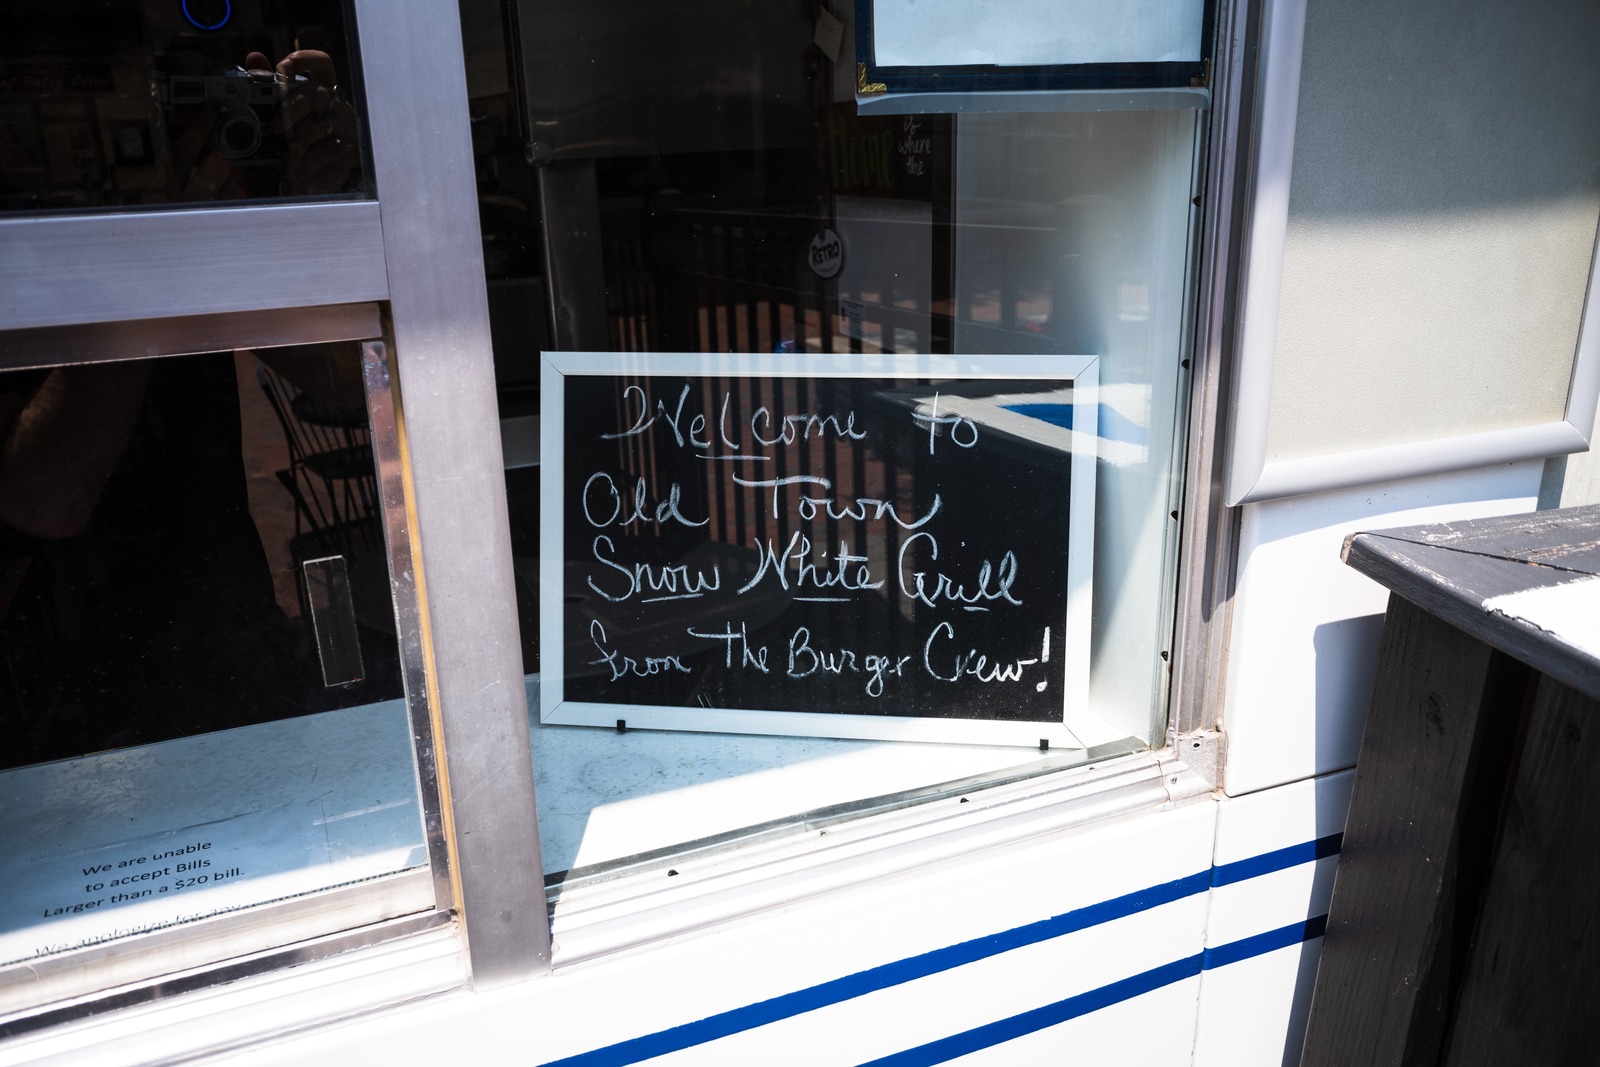 Home
is
where
the
RETRO
Welcome to
Old Town
Snow White Grill
from The Burger Crew!
We are unable
to accept Bills
Larger than a $20 bill.
We apologize for any